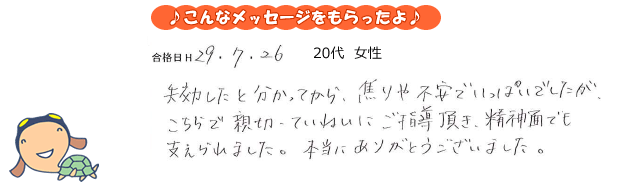 ♪こんなメッセージをもらったよ♪
合格日H 29.7.26 20代 女性
失効したと分かってから、焦りや不安でいっぱいでしたが、
こちらで親切・ていねいにご指導頂き、精神面でも
支えられました。本当にありがとうございました。